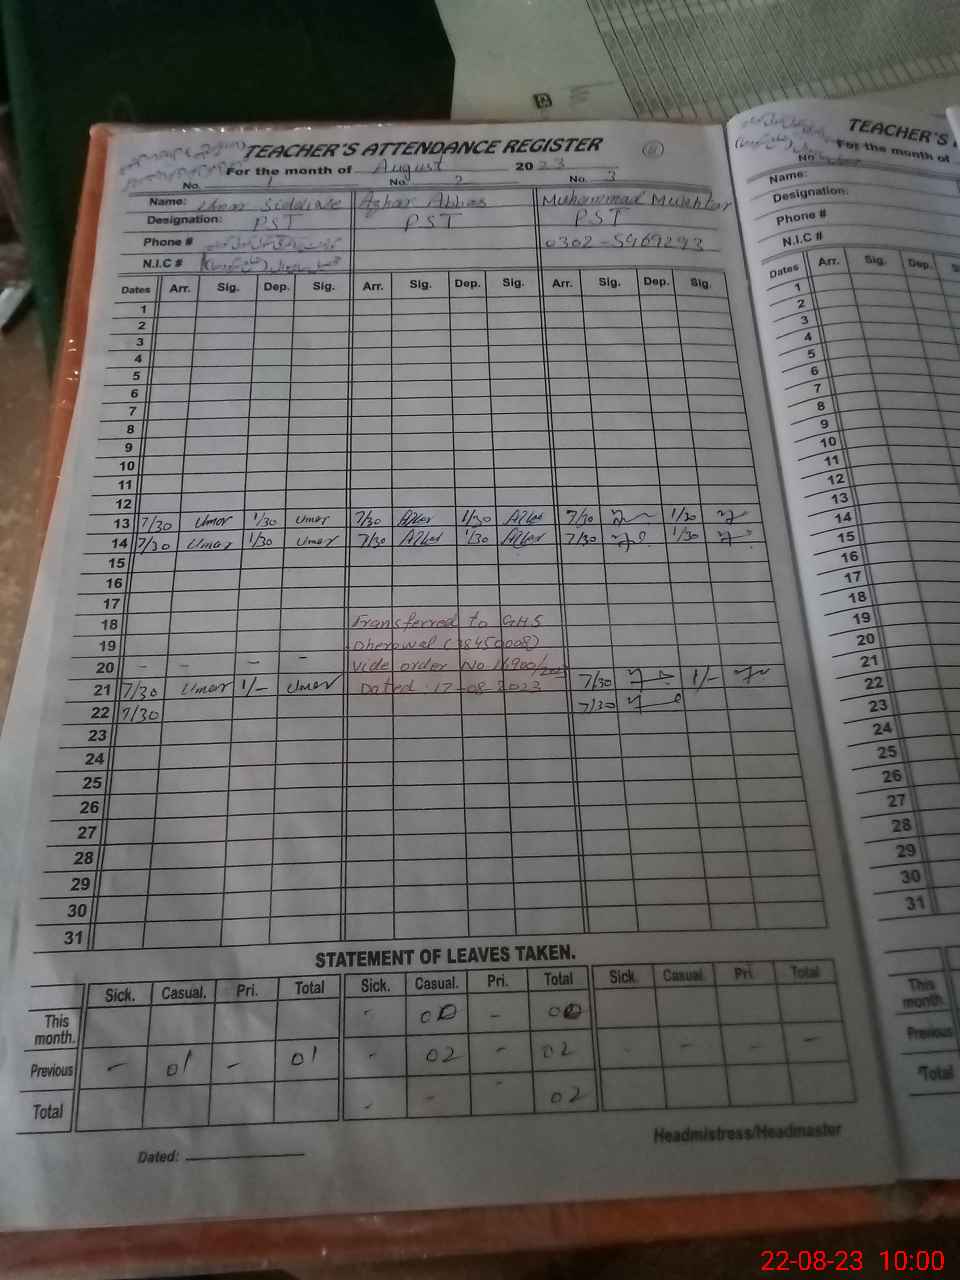 TEACHER'S ATTENDANCE REGISTER
For the month of August 2023
No. 1 No. 2 No. 3
Name: Umar Azhar Abbas Muhammad Mukhtar
Designation: PST PST PST
Phone # 0302-5969293
N.I.C #
Dates Arr. Sig. Dep. Sig. Arr. Sig. Dep. Sig. Arr. Sig. Dep. Sig.
1
2
3
4
5
6
7
8
9
10
11
12
13 7/30 Umar 1/30 Umar 7/30 1/30 7/30 1/30
14 7/30 Umar 1/30 Umar 7/30 1/30 7/30 1/30
15
16
17
18 Transferred to GHS
19 Dherowal (38450008)
20 - - - - Vide order No 16900/
21 7/30 Umar 1/- Umar Dated 17-08-2023 7/30 1/-
22 7/30 7/30
23
24
25
26
27
28
29
30
31
STATEMENT OF LEAVES TAKEN.
Sick. Casual. Pri. Total Sick. Casual. Pri. Total Sick. Casual. Pri. Total
This month. - 00 - 00
Previous - 01 - 01 - 02 - 02 - - - -
Total - - - 02
Dated:
Headmistress/Headmaster
TEACHER'S
For the month of
No
Name:
Designation:
Phone #
N.I.C #
Dates Arr. Sig. Dep. Sig.
1
2
3
4
5
6
7
8
9
10
11
12
13
14
15
16
17
18
19
20
21
22
23
24
25
26
27
28
29
30
31
This month.
Previous
Total
22-08-23 10:00